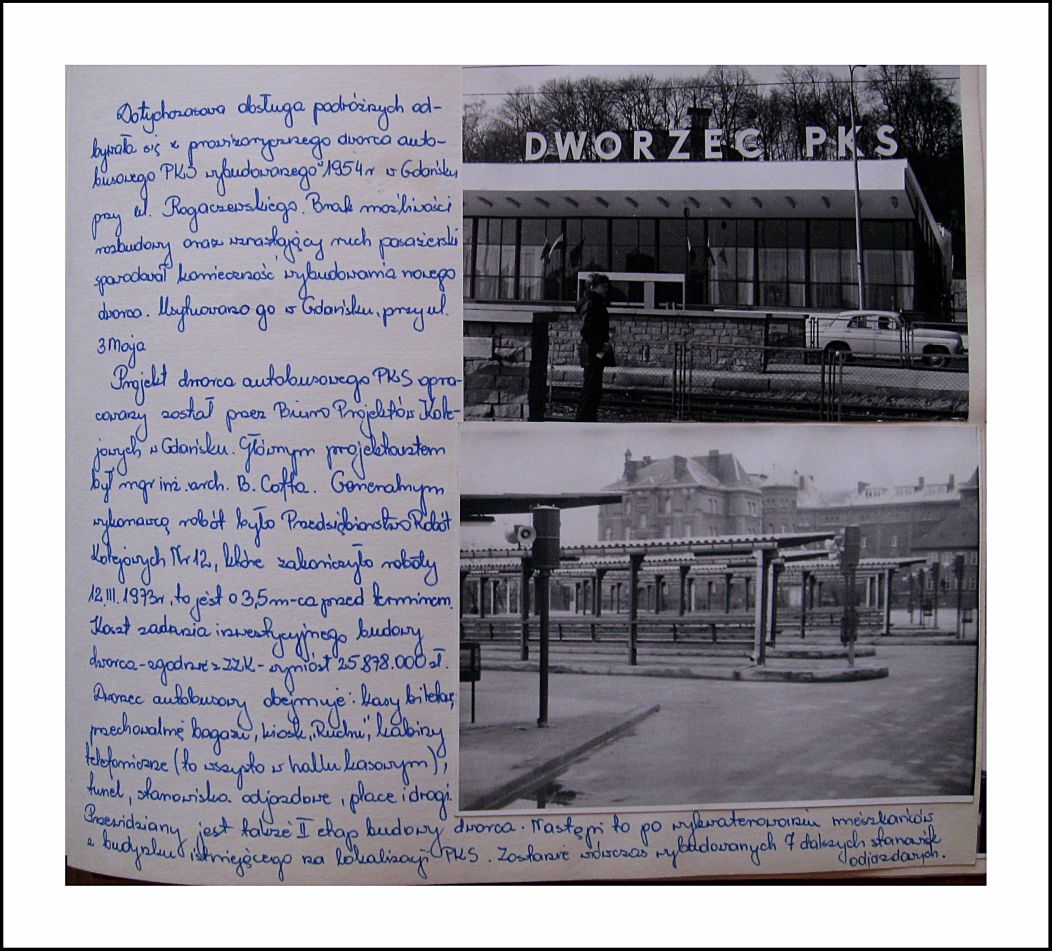 Dotychczasowa obsługa podróżnych od-
bywała się z prowizorycznego dworca auto-
busowego PKS wybudowanego 1954 r w Gdańsku
przy ul. Rogaczewskiego. Brak możliwości
rozbudowy oraz wzrastający ruch pasażerski
spowodował konieczność wybudowania nowego
dworca. Usytuowano go w Gdańsku, przy ul.
3 Maja
Projekt dworca autobusowego PKS opra-
cowany został przez Biuro Projektów Kole-
jowych w Gdańsku. Głównym projektantem
był mgr inż. arch. B. Coffa. Generalnym
wykonawcą robót było Przedsiębiorstwo Robót
Kolejowych Nr 12, które zakończyło roboty
12.III.1973r, to jest o 3,5 m-ca przed terminem.
Koszt zadania inwestycyjnego budowy
dworca - zgodnie z ZZK - wyniósł 25 878.000 zł.
Dworzec autobusowy obejmuje: kasy biletowe,
przechowalnię bagażu, kiosk „Ruchu", kabiny
telefoniczne (to wszystko w hallu kasowym),
tunel, stanowiska odjazdowe, place i drogi
Przewidziany jest także II etap budowy dworca. Nastąpi to po wykwaterowaniu mieszkańców
z budynku istniejącego na lokalizacji PKS. Zostanie wówczas wybudowanych 7 dalszych stanowisk
odjazdowych.
DWORZEC PKS